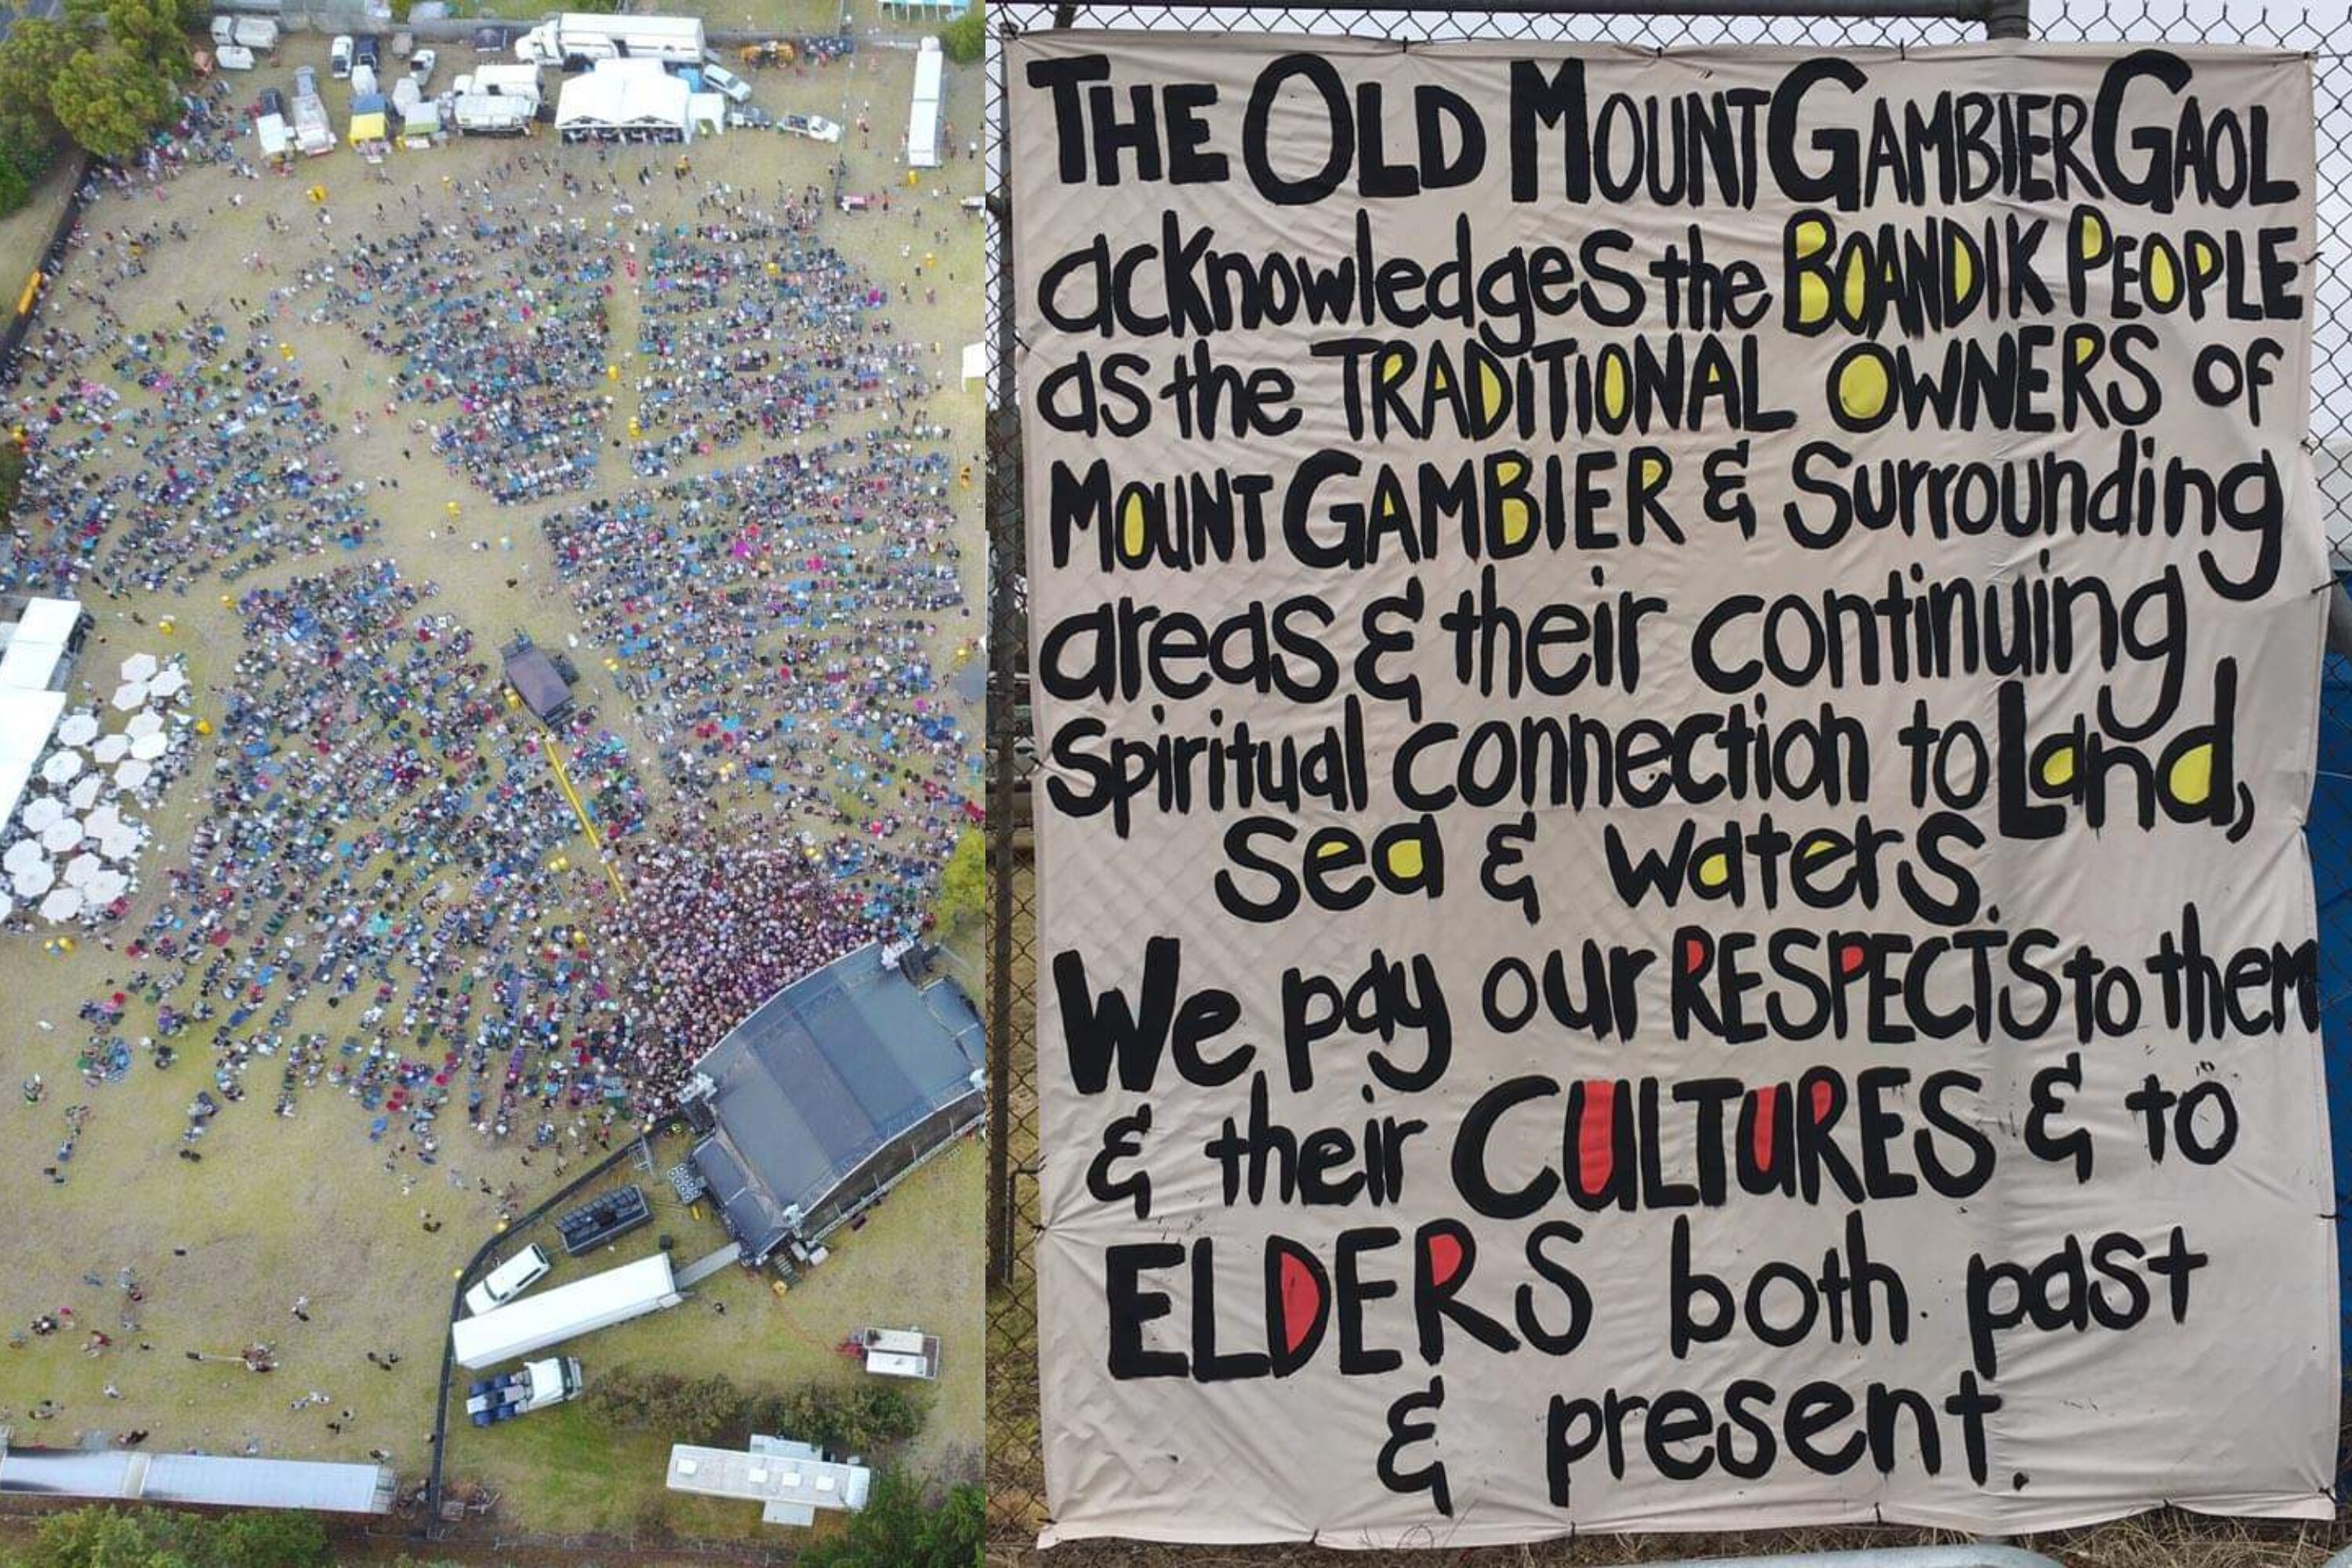 THE OLD MOUNT GAMBIER GAOL
acknowledges the BOANDIK PEOPLE
as the TRADITIONAL OWNERS OF
MOUNT GAMBIER & Surrounding
areas & their continuing
Spiritual connection to Land,
Sea & waters.
We pay our RESPECTS to them
& their CULTURES & to
ELDERS both past
& present.